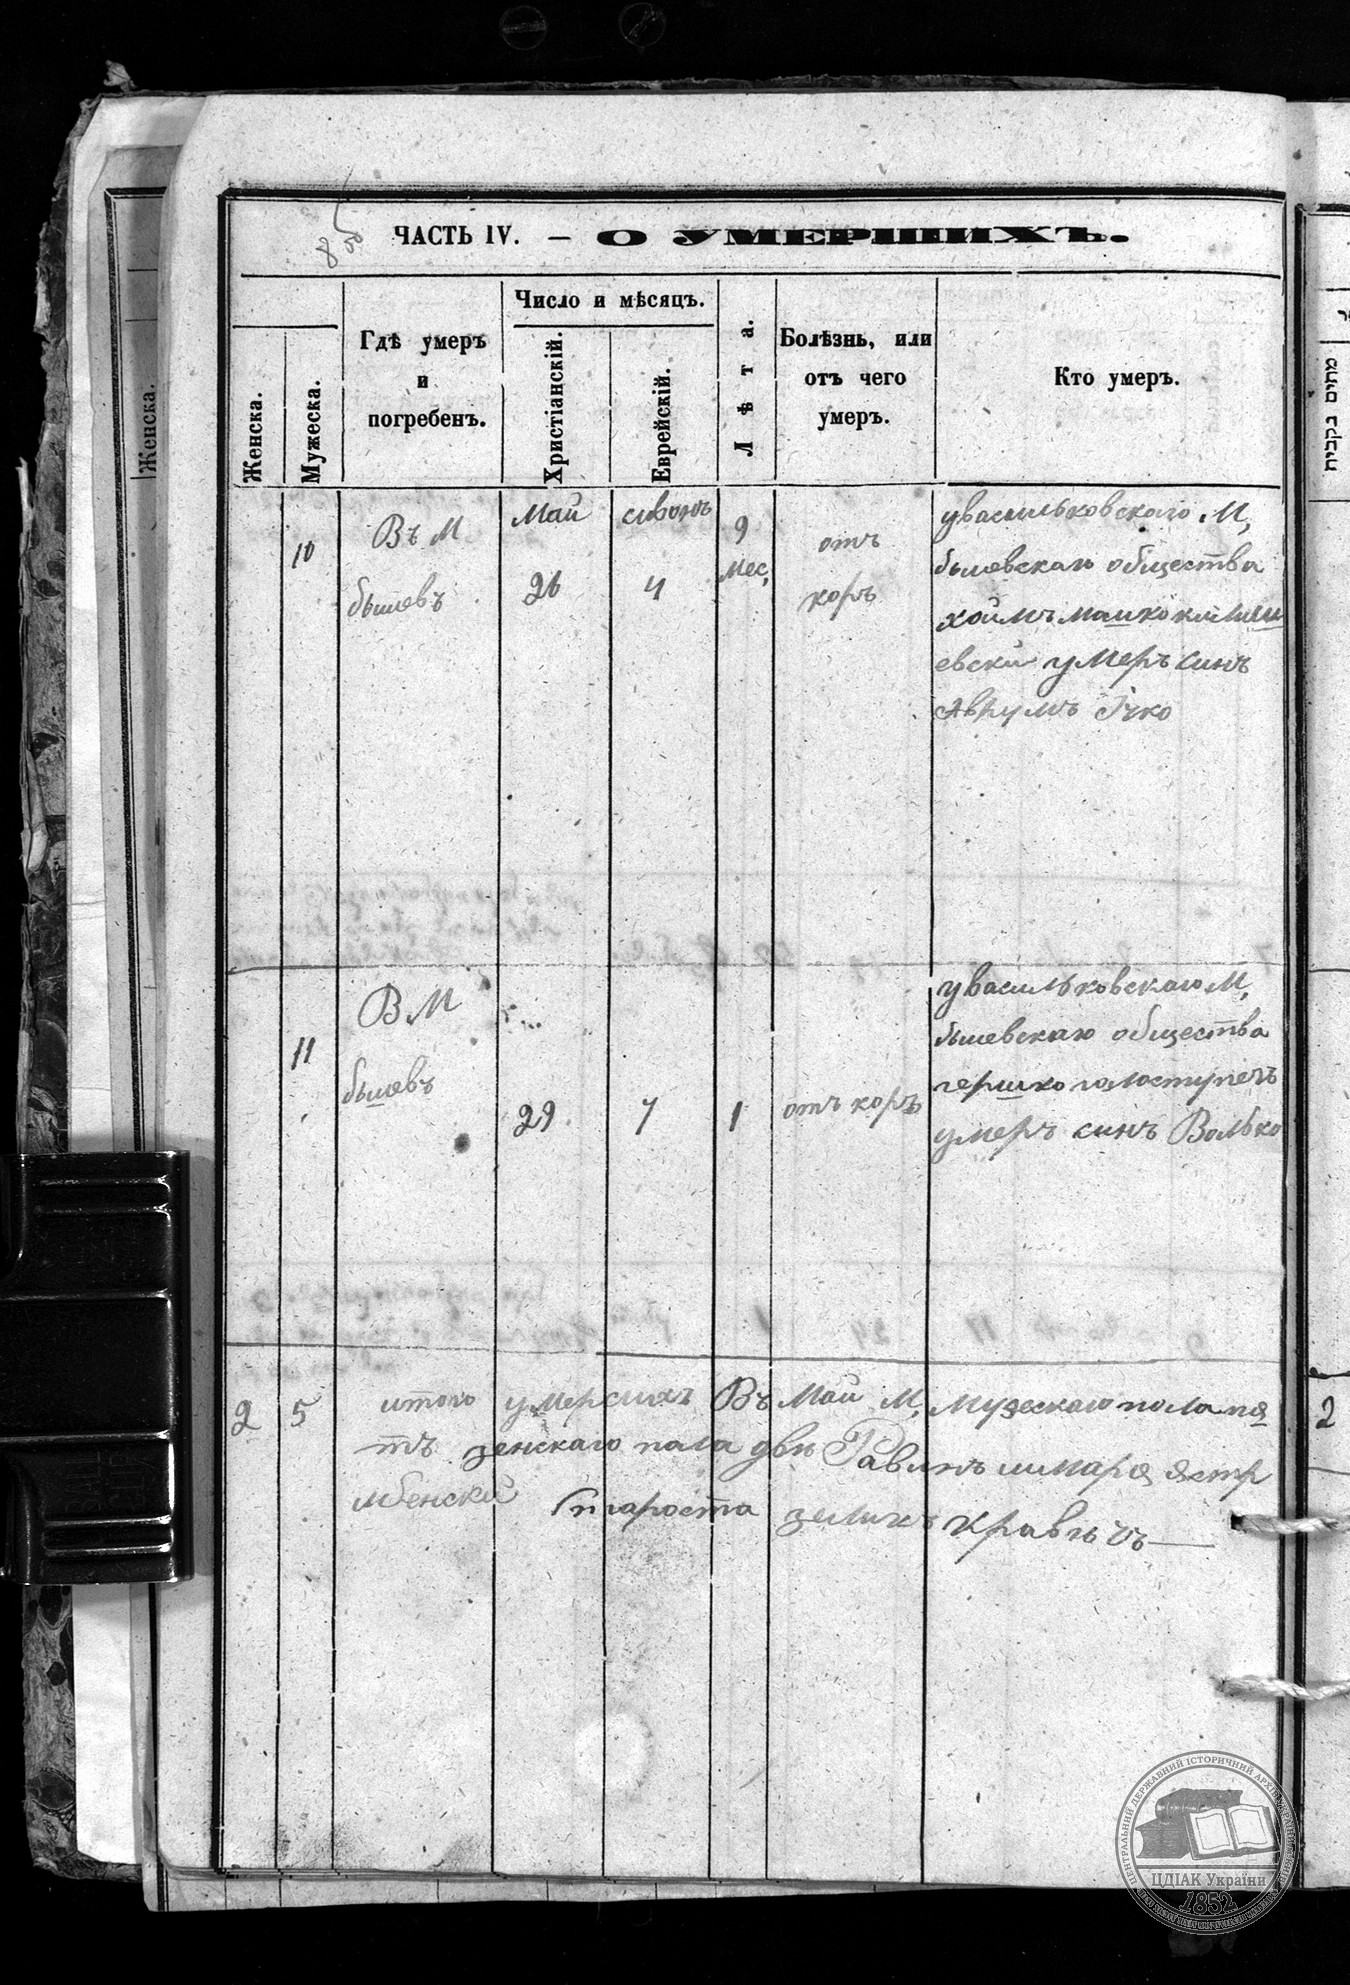 ЧАСТЬ IV. — О УМЕРШИХЪ.
Женска.
Мужеска.
Гдѣ умеръ
и
погребенъ.
Число и мѣсяцъ.
Христіанскій.
Еврейскій.
Лѣта.
Болѣзнь, или
отъ чего
умеръ.
Кто умеръ.
10
Въ М
бышевъ
Май
26
сивонъ
4
9
мес,
отъ
коръ
увасильковскаго М,
бышевскаю общества
хаимъ машко
евски умеръ синъ
Аврумъ Ічко
11
В М
бышевъ
29
7
1
отъ коръ
увасильковскаю М,
бышевскаю общества
гершко голоступечъ
умеръ синъ Волько
2 5 итого умерсихъ Въ Май М, музескаго пола пя
тъ зенскаго пола дви Равинъ шмаря ястр
мбенски Староста зеликъ кравецъ
Женска.
2
ЦЕНТРАЛЬНИЙ ДЕРЖАВНИЙ ІСТОРИЧНИЙ АРХІВ УКРАЇНИ
ЦДІАК України
1852